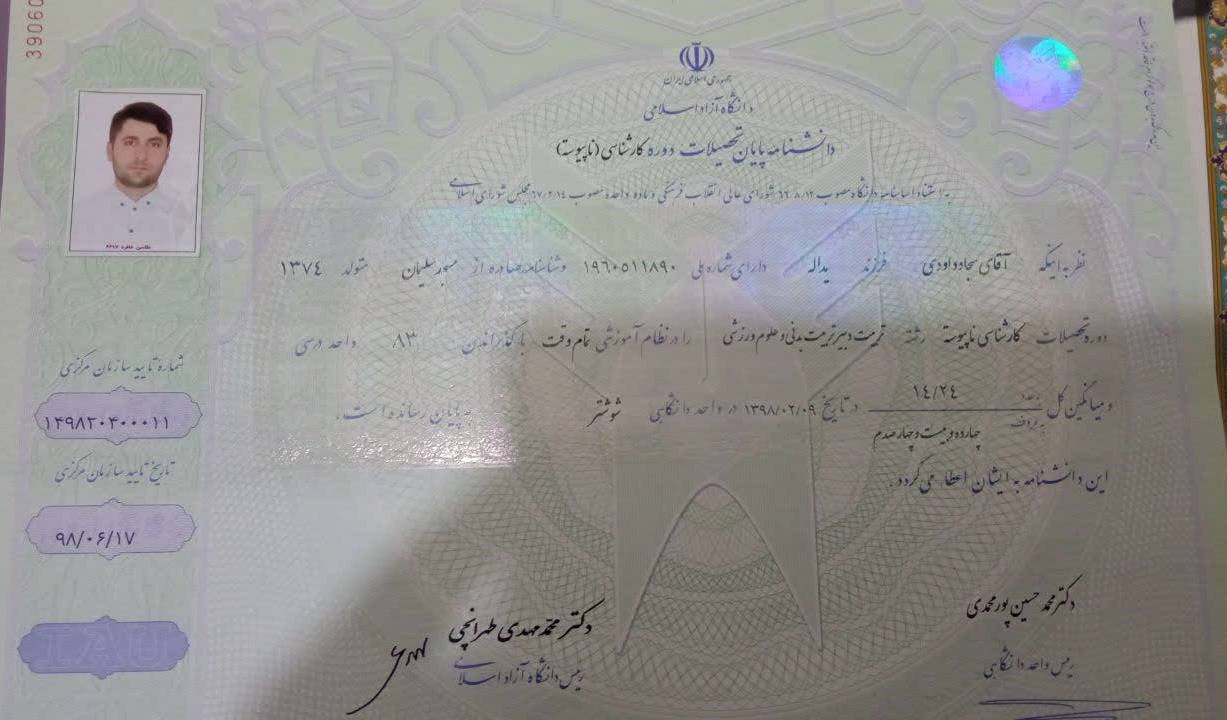 39060
جمهوری اسلامی ایران
دانشگاه آزاد اسلامی
دانشنامه پایان تحصیلات دوره کارشناسی (ناپیوسته)
به استناد اساسنامه دانشگاه مصوب ۶۶/۸/۱۲ شورای عالی انقلاب فرهنگی و ماده واحده مصوب ۶۷/۲/۱٤ مجلس شورای اسلامی
نظر به اینکه آقای سجاد داودی فرزند یداله دارای شماره ملی ۱۹۶۰۵۱۱۸۹۰ و شناسنامه صادره از مسجدسلیمان متولد ۱۳۷٤
دوره تحصیلات کارشناسی ناپیوسته رشته تربیت دبیر تربیت بدنی و علوم ورزشی را در نظام آموزشی تمام وقت با گذراندن ۸۳ واحد درسی
و میانگین کل به عدد ۱٤/۲٤ به حروف چهارده و بیست و چهار صدم در تاریخ ۱۳۹۸/۰۲/۰۹ در واحد دانشگاهی شوشتر به پایان رسانده است.
این دانشنامه به ایشان اعطا می‌گردد.
شماره تایید سازمان مرکزی
۱٤۹۸۲۰٤۰۰۰۱۱
تاریخ تایید سازمان مرکزی
۹۸/۰۶/۱۷
IAU
دکتر محمد حسین پورمحمدی
رئیس واحد دانشگاهی
دکتر محمد مهدی طهرانچی
رئیس دانشگاه آزاد اسلامی